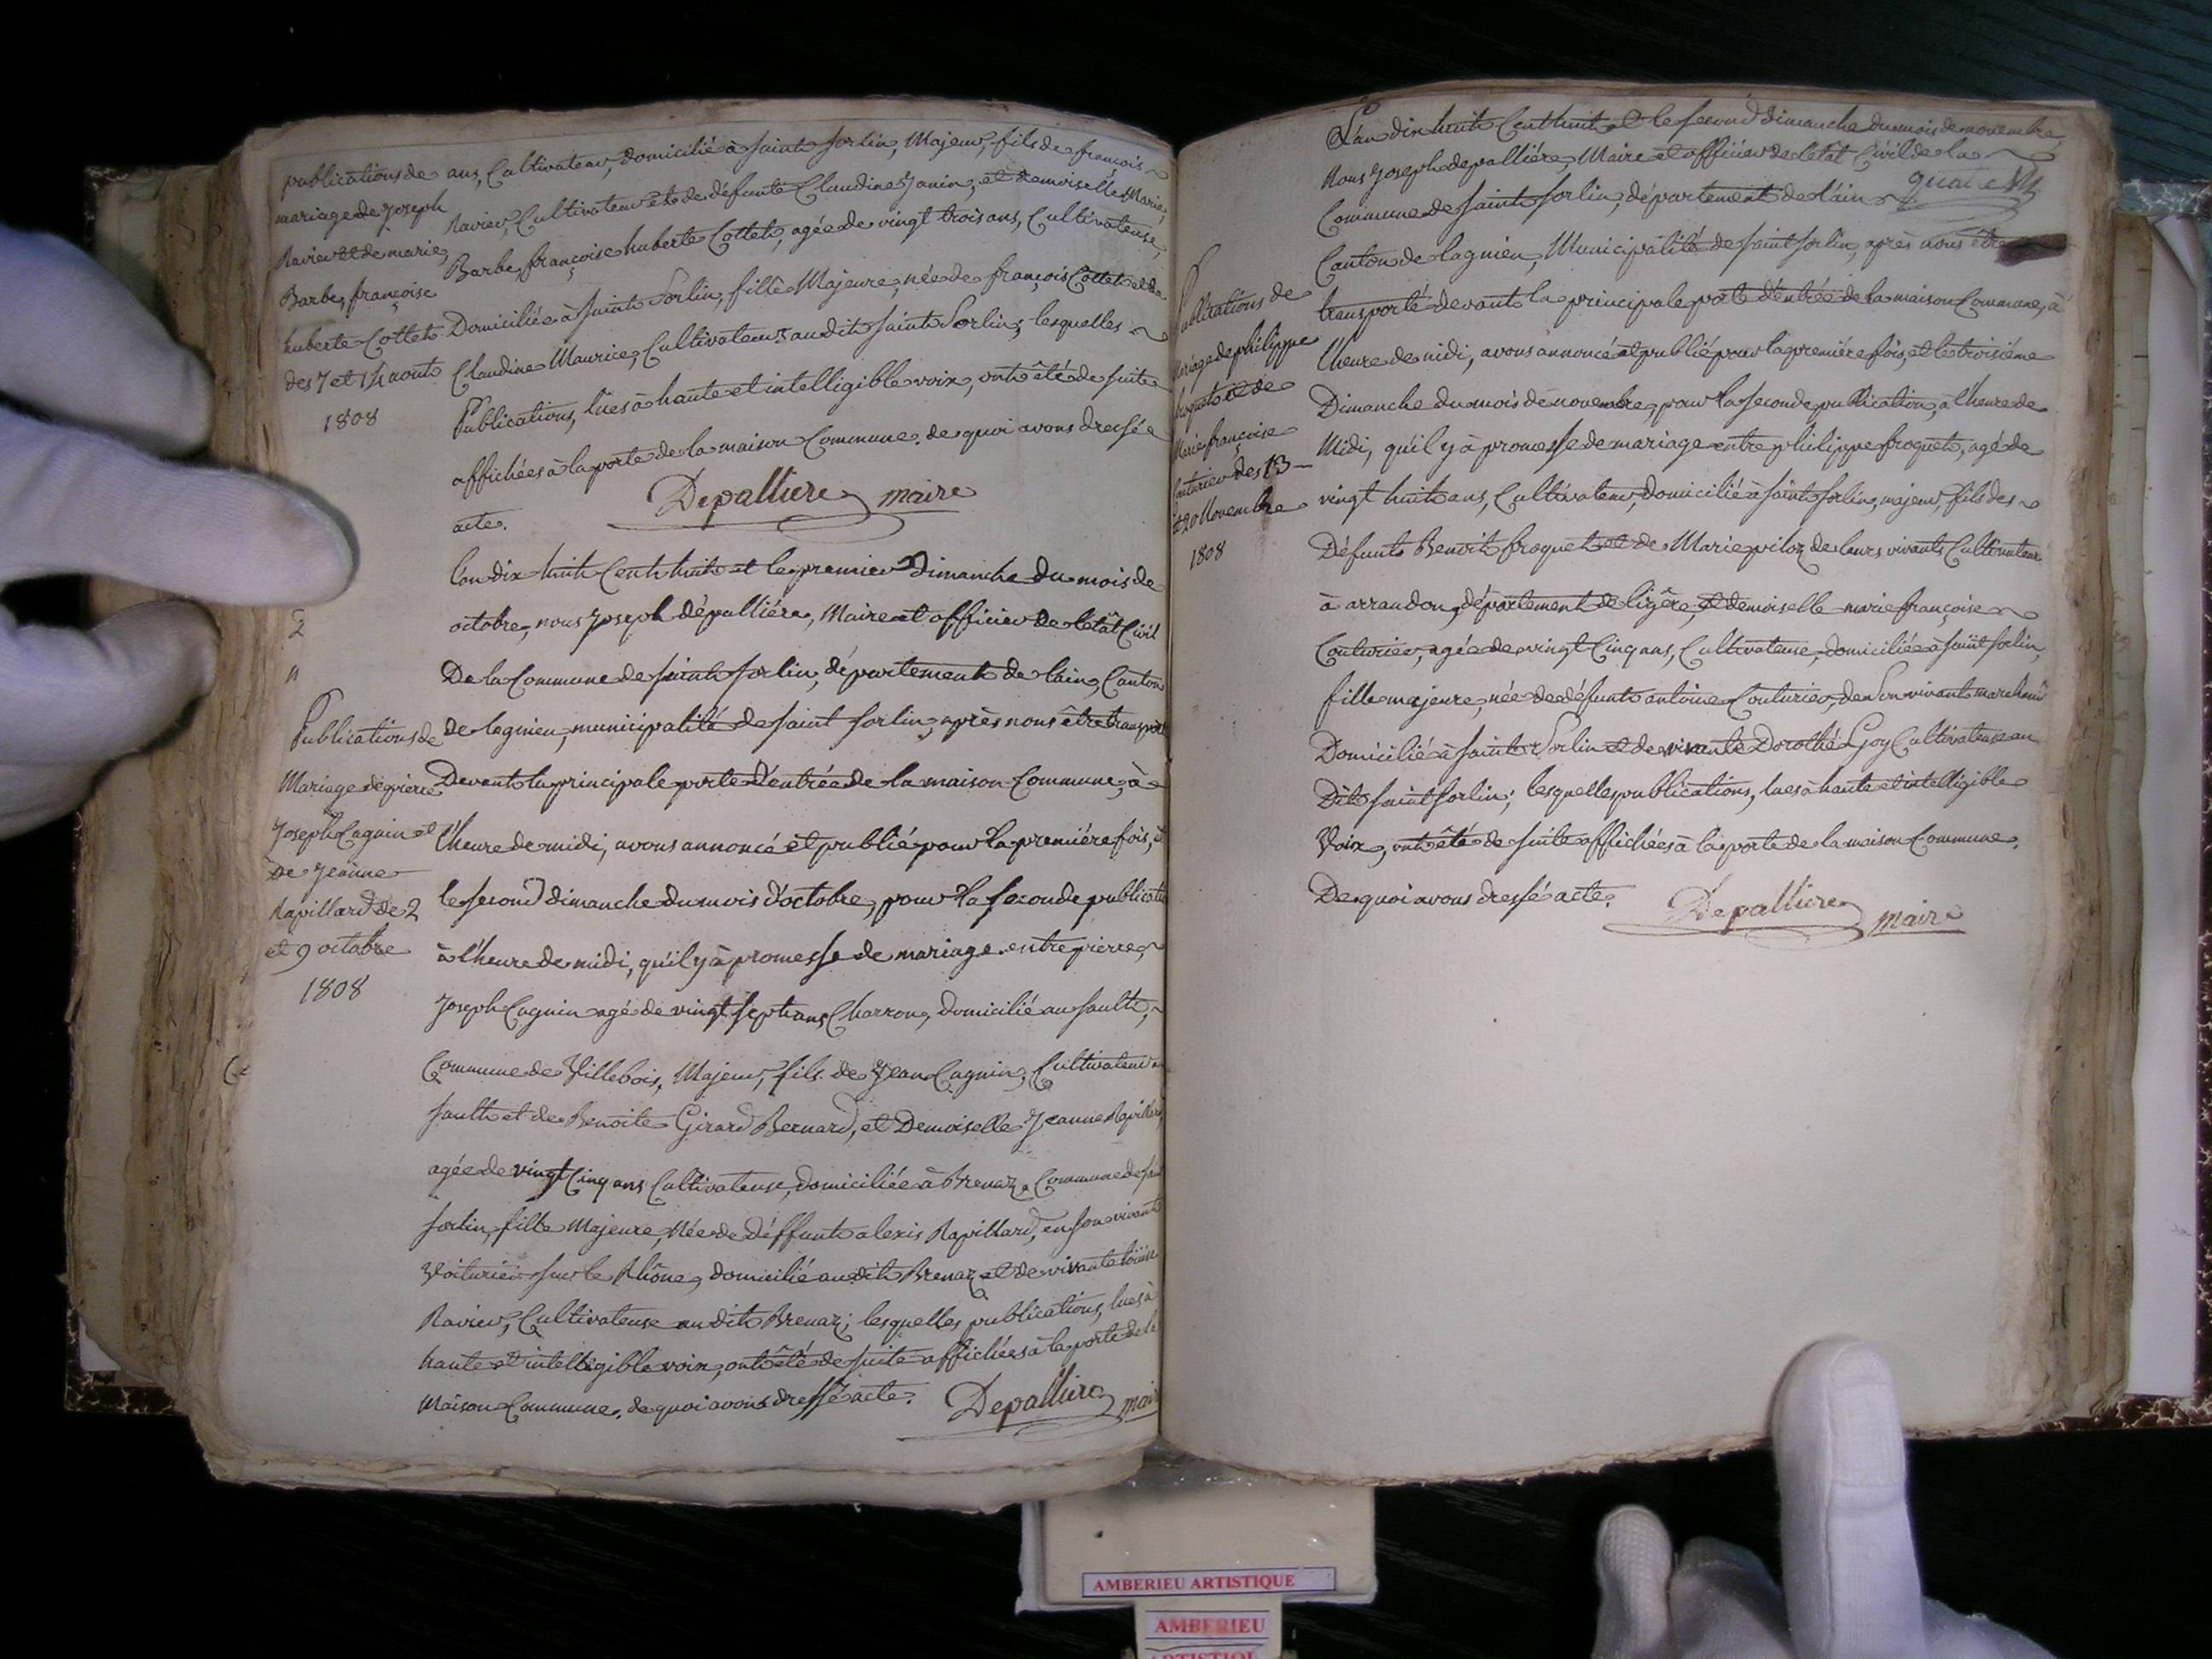 publications de
mariage de Joseph
Ravier et de marie
Barbe, françoise
huberte Cottet
des 7 et 14 aout
1808
ans, Cultivateur, domicilié à saint Sorlin, Majeur, fils de françois
Ravier, Cultivateur et de défunte Claudine Janin, et demoiselle Marie,
Barbe, françoise huberte Cottet, agée de vingt trois ans, Cultivateuse,
Domiciliée à saint Sorlin, fille Majeure, née de françois Cottet et de
Claudine Maurice, Cultivateurs audit saint Sorlin; lesquelles
Publications, lües à haute et intelligible voix, ont été de suite
affichées à la porte de la maison Commune. de quoi avons dressé
acte.
Depalliere maire
2
n
Publications de
Mariage de pierre
Joseph Cagnin et
De Jeanne
Rapillard de 2
et 9 octobre
1808
L'an dix huit Cent huit et le premier Dimanche du mois de
octobre, nous Joseph dépalliére, Maire et officier de l'etat Civil
De la Commune de saint Sorlin, département de l'ain, Canton
de lagnieu, municipalité de saint Sorlin, après nous être transporté
Devant la principale porte d'entrée de la maison Commune, à
l'heure de midi, avons annoncé et publié pour la premiére fois, et
le second dimanche du mois d'octobre, pour la seconde publication
à l'heure de midi, qu'il y à promesse de mariage entre pierre,
Joseph Cagnin agé de vingt sept ans Charron, domicilié au sault,
Commune de Villebois, Majeur, fils de Jean Cagnin, Cultivateur
sault et de Benoite Girard Bernard, et Demoiselle Jeanne Rapillard,
agée de vingt Cinq ans Cultivateuse, domiciliée à Brenaz Commune de saint
Sorlin, fille Majeure, Née de déffunt alexis Rapillard, en son vivant
Voiturier sur le Rhône, domicilié audit Brenaz et de vivante loüise
Ravier, Cultivateuse audit Brenaz; lesquelles publications, lues à
haute et intelligible voix, ont été de suite affichées à la porte de la
Maison Commune. de quoi avons dressé acte.
Depalliere maire
Publications de
Mariage de philippe
froquet et de
Marie françoise
Couturier des 13
et 20 Novembre
1808
L'an dix huit Cent huit et le second dimanche du mois de novembre,
Nous Joseph depalliére, Maire et officier de l'etat Civil de la
Commune de saint Sorlin, département de l'ain
Canton de lagnieu, Municipalité de saint Sorlin, après nous être
transporté devant la principale porte d'entrée de la maison Commune, à
l'heure de midi, avons annoncé et publié pour la premiére fois, et le troisiéme
Dimanche du mois de novembre, pour la seconde publication, à l'heure de
Midi, qu'il y à promesse de mariage entre philippe froquet, agé de
vingt huit ans, Cultivateur, domicilié à saint Sorlin, majeur, fils des
Défunts Benoit froquet et de Marie piloz de leurs vivants Cultivateurs
à arrandon, département de lizére, et demoiselle marie françoise
Couturier, agée de vingt Cinq ans, Cultivateuse, domiciliée à saint Sorlin,
fille majeure, née de défunt antoine Couturier, de Son vivant marchand
Domicilié à saint Sorlin et de vivante Dorothé Goy Cultivateuse au
Dit saint Sorlin; lesquelles publications, lues à haute et intelligible
Voix, ont été de suite affichées à la porte de la maison Commune.
De quoi avons dressé acte.
Depalliere maire
AMBERIEU ARTISTIQUE
AMBERIEU
ARTISTIQUE